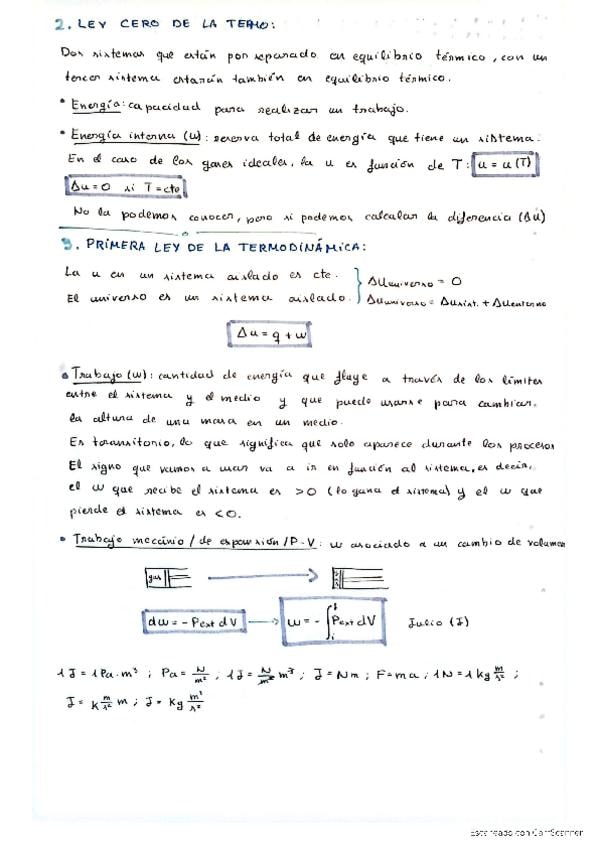 2. LEY CERO DE LA TERMO:
Dos sistemas que están por separado en equilibrio térmico, con un
tercer sistema estarán también en equilibrio térmico.
• Energía: capacidad para realizar un trabajo.
• Energía interna (u): reserva total de energía que tiene un sistema.
En el caso de los gases ideales, la u es función de T: u = u(T)
Δu = 0 si T = cte
No la podemos conocer, pero si podemos calcular la diferencia (Δu)
3. PRIMERA LEY DE LA TERMODINÁMICA:
La u en un sistema aislado es cte. } Δu universo = 0
El universo es un sistema aislado. } Δu universo = Δu sist. + Δu entorno
Δu = q + w
• Trabajo (w): cantidad de energía que fluye a través de los límites
entre el sistema y el medio y que puede usarse para cambiar
la altura de una masa en un medio.
Es transitorio, lo que significa que solo aparece durante los procesos
El signo que vamos a usar va a ir en función al sistema, es decir,
el w que recibe el sistema es >0 (lo gana el sistema) y el w que
pierde el sistema es <0.
• Trabajo meccánio / de expansión / P-V: w asociado a un cambio de volumen
gas
dw = - Pext dV → w = - ∫ᵢᶠ Pext dV Julio (J)
1J = 1Pa·m³ ; Pa = N/m² ; 1J = N/m² m³ ; J = Nm ; F = ma ; 1N = 1 kg m/s² ;
J = K m/s² m ; J = Kg m²/s²
Escaneado con CamScanner